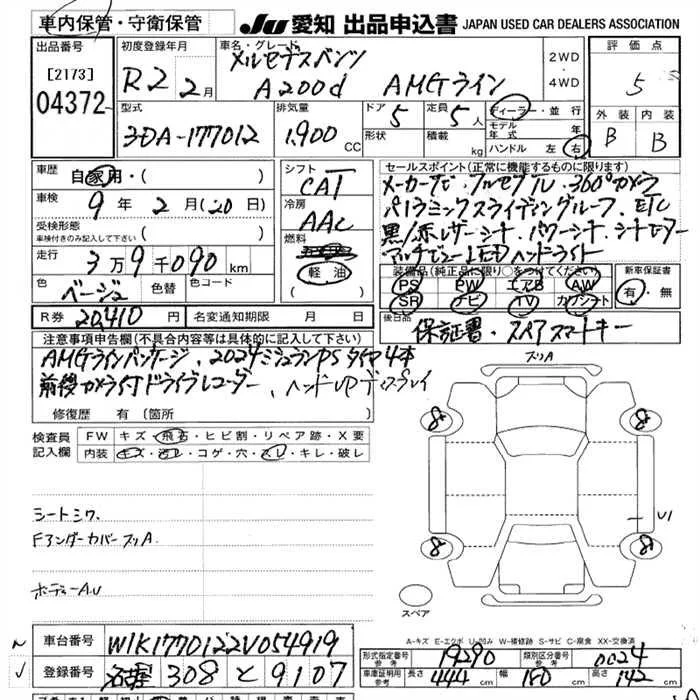 車内保管・守衛保管
JU 愛知 出品申込書 JAPAN USED CAR DEALERS ASSOCIATION
出品番号
[2173]
04372
初度登録年月
R2 2月
車名・グレード
メルセデスベンツ
A200d AMGライン
2WD
・
4WD
評価点
5
外装 内装
B B
型式
3DA-177012
排気量
1,900 CC
ドア 5
定員 5人
形状
積載 kg
ディーラー・並行
モデル年式 年
ハンドル 左 右
車歴
自家用・( )
車検
9年 2月 (20日)
受検形態
車検付きのみ記入して下さい ( )
走行
3万9千090km
色
ベージュ
色替
色コード
シフト
CAT
冷房
AAC
燃料
軽油
セールスポイント(正常に機能するものに限ります)
メーカーナビ・フルセグTV・360°カメラ
パノラミックスライディングルーフ・ETC
黒/赤レザーシート・パワーシート・シートヒーター
マルチビームLEDヘッドライト
装備品(純正品に限り○をつけてください)
PS PW エアB AW
SR ナビ TV カワシート
新車保証書
有・無
R券 20,410円
名変通知期限 月 日
後日品
保証書・スペアスマートキー
注意事項申告欄(不具合内容等は具体的に記入して下さい)
AMGラインパッケージ、2024ミシュランPSタイヤ4本
前後カメラ付ドライブレコーダー、ヘッドUPディスプレイ
修復歴 有(箇所
フスリA
検査員記入欄
FW キズ・飛石・ヒビ割・リペア跡・X要
内装 キズ・汚レ・コゲ・穴・スレ・キレ・破レ
8 8
U1
8 8
シートシワ
FアンダーカバースリA
ボディーA.U
スペア
A-キズ E-エクボ U-凹み W-補修跡 S-サビ C-腐食 XX-交換済
車台番号 W1K1770122V054919
登録番号 名古屋 308 と 9107
形式指定番号 参考 19290
類別区分番号 参考 0024
車庫証明用 参考 長さ 444 cm 幅 180 cm 高さ 142 cm